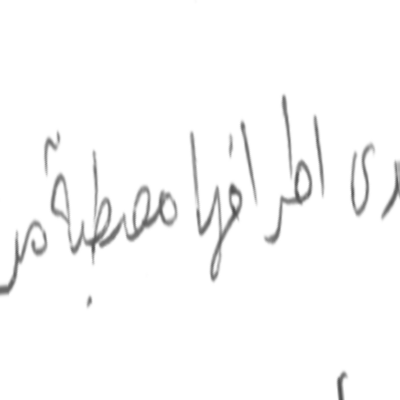 اطرافها مصطبة من